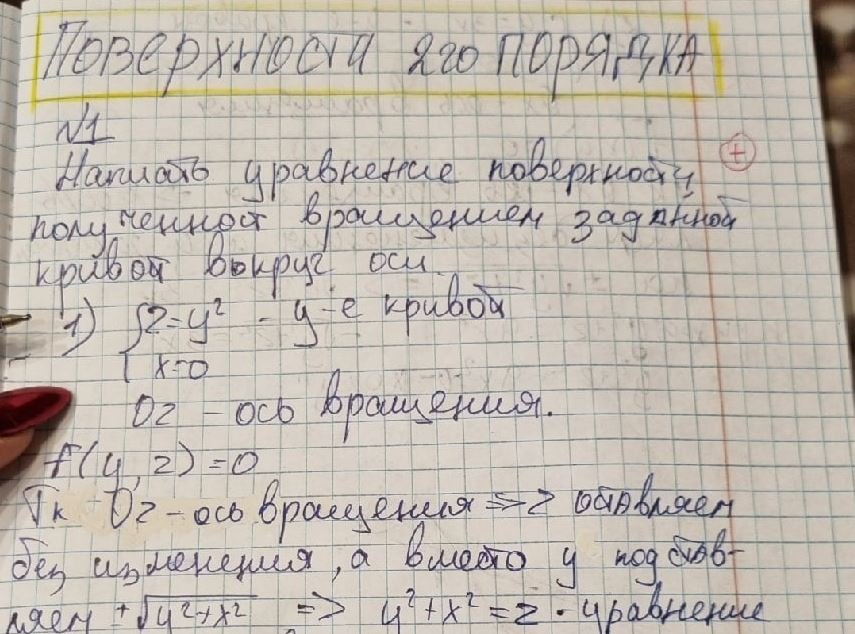 Поверхности 2го порядка
№1
Написать уравнение поверхности
полученной вращением заданной
кривой вокруг оси.
1) {z=y² - у-е кривой
x=0
Oz - ось вращения.
F(y, z) = 0
Тк Oz - ось вращения => z оставляем
без изменения, а вместо y подстав-
ляем ±√y²+x² => y²+x²=z · уравнение